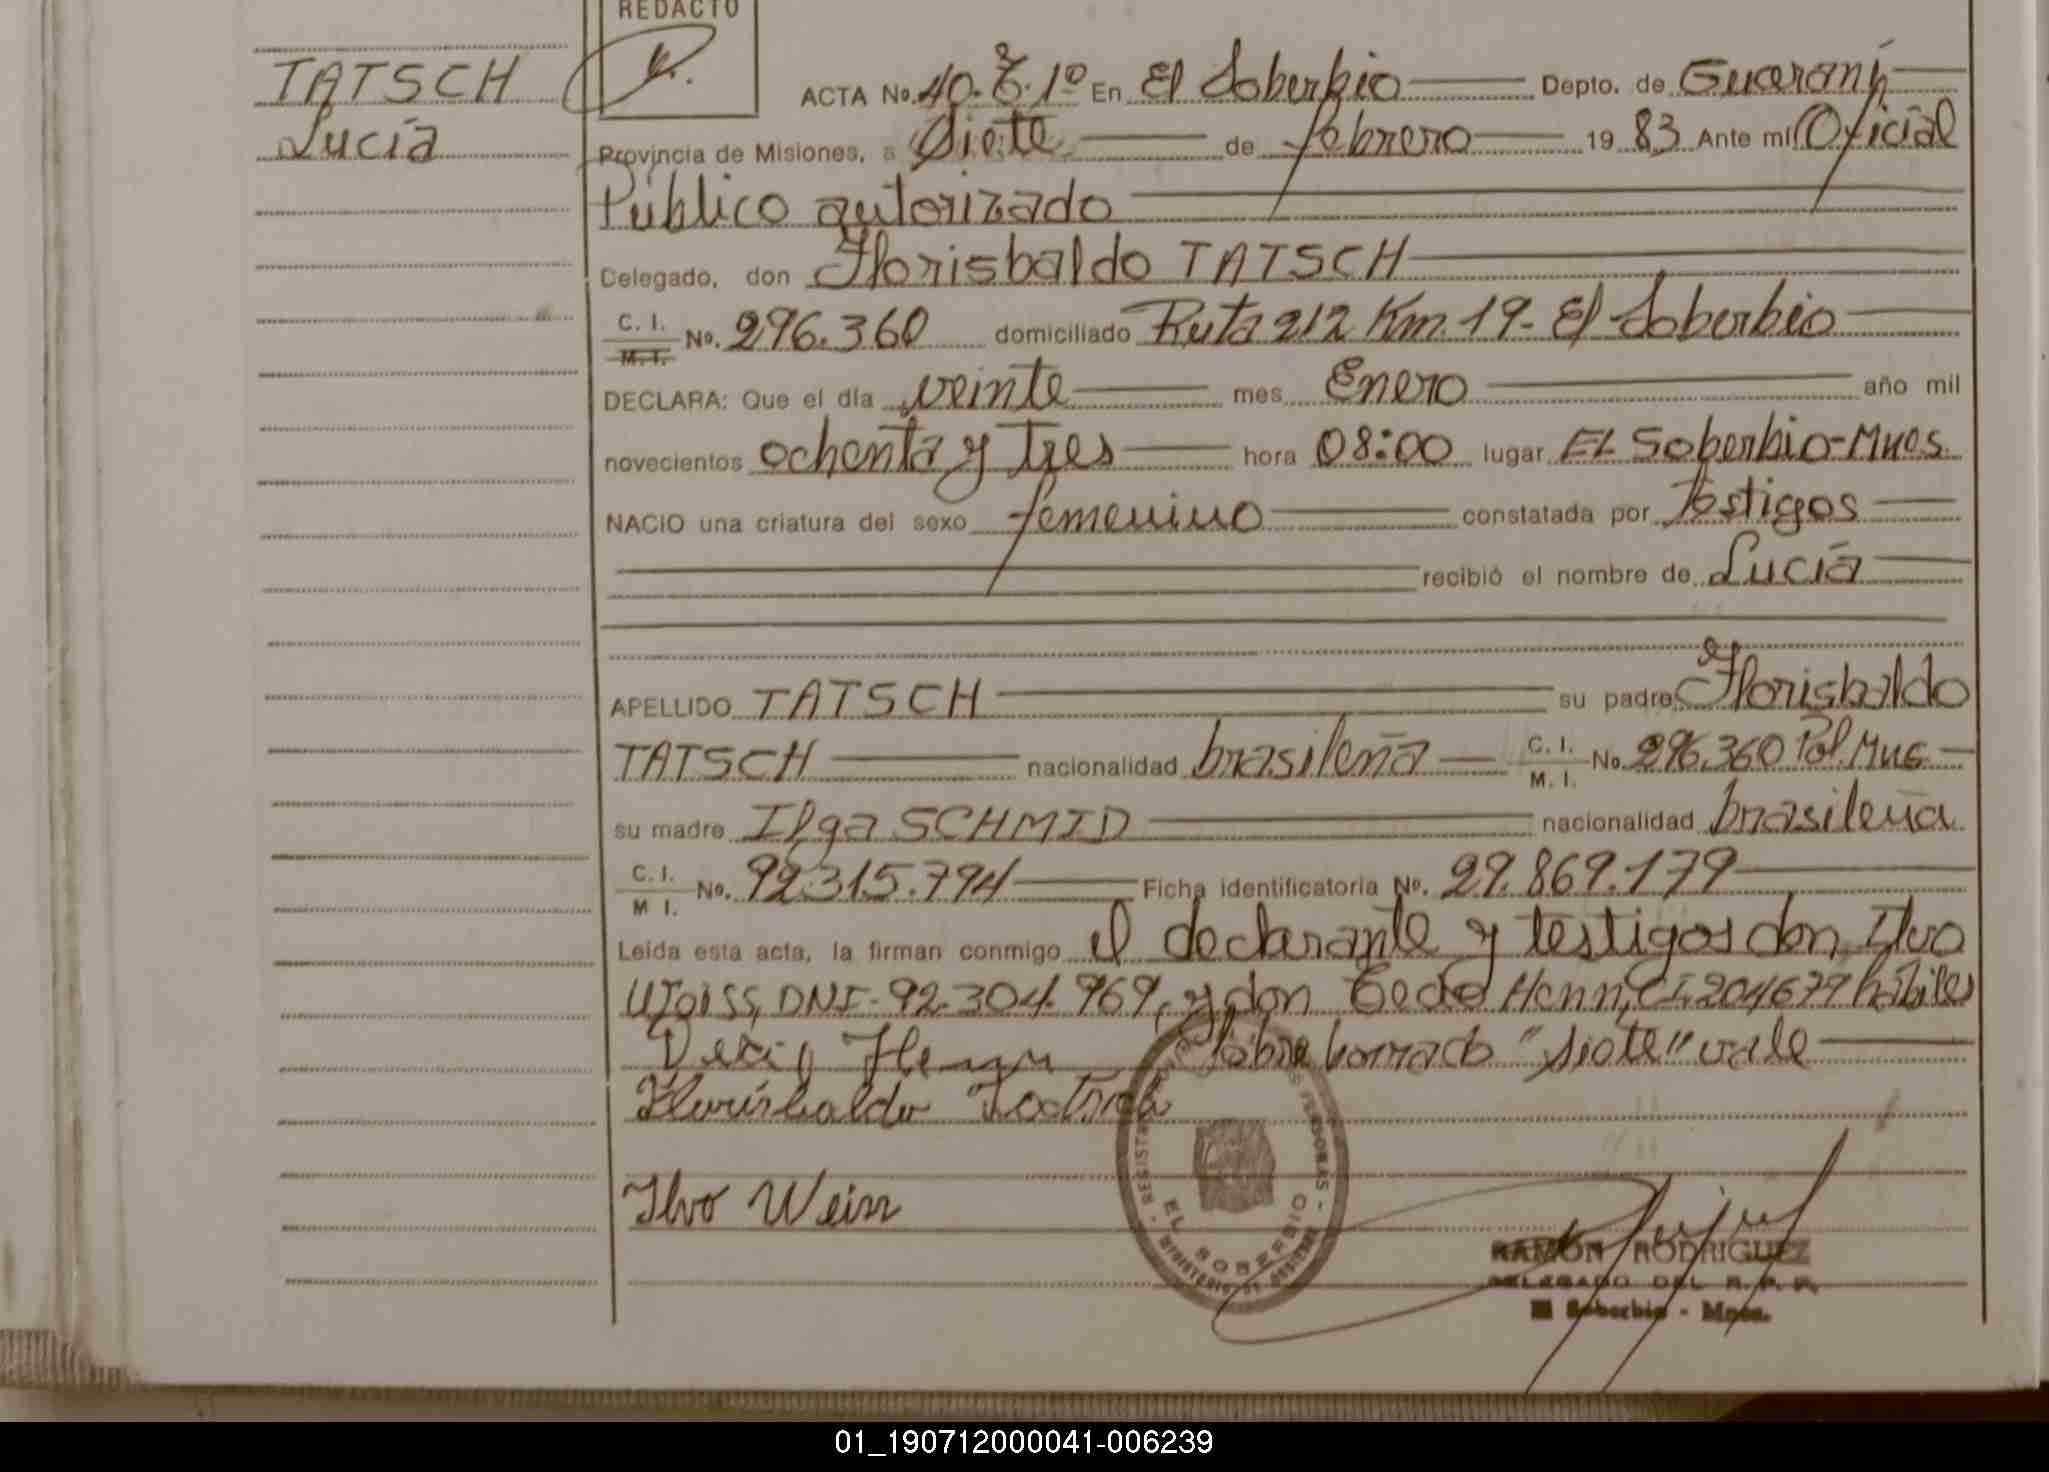 REDACTO
TATSCH
Lucía
ACTA No. 40. T. 1º En El Soberbio Depto. de Guaraní
Provincia de Misiones, a Siete de febrero 19 83 Ante mí Oficial
Público autorizado
Delegado, don Florisbaldo TATSCH
C. I. M. I. No. 296.360 domiciliado Ruta 212 Km. 19- El Soberbio
DECLARA: Que el día veinte mes Enero año mil
novecientos ochenta y Tres hora 08:00 lugar EL Soberbio-Mnes.
NACIO una criatura del sexo femenino constatada por Testigos
recibió el nombre de Lucía
APELLIDO TATSCH su padre Florisbaldo
TATSCH nacionalidad brasileña C. I. M. I. No. 296.360 Pol. Mnes
su madre Ilga SCHMID nacionalidad brasileña
C. I. M I. No. 92.315.794 Ficha identificatoria No. 29.869.179
Leída esta acta, la firman conmigo el declarante y testigos don Ilvo
Weiss, DNI- 92.304.969, y don Henn, CI. 204679 hábiles
Henn Sobre borrado "siete" vale
Florisbaldo Tatsch
Ilvo Weiss
REGISTRO
EL SOBERBIO
MINISTERIO DE
RAMON RODRIGUEZ
DELEGADO DEL R. P. P.
El Soberbio - Mnes.
01_190712000041-006239